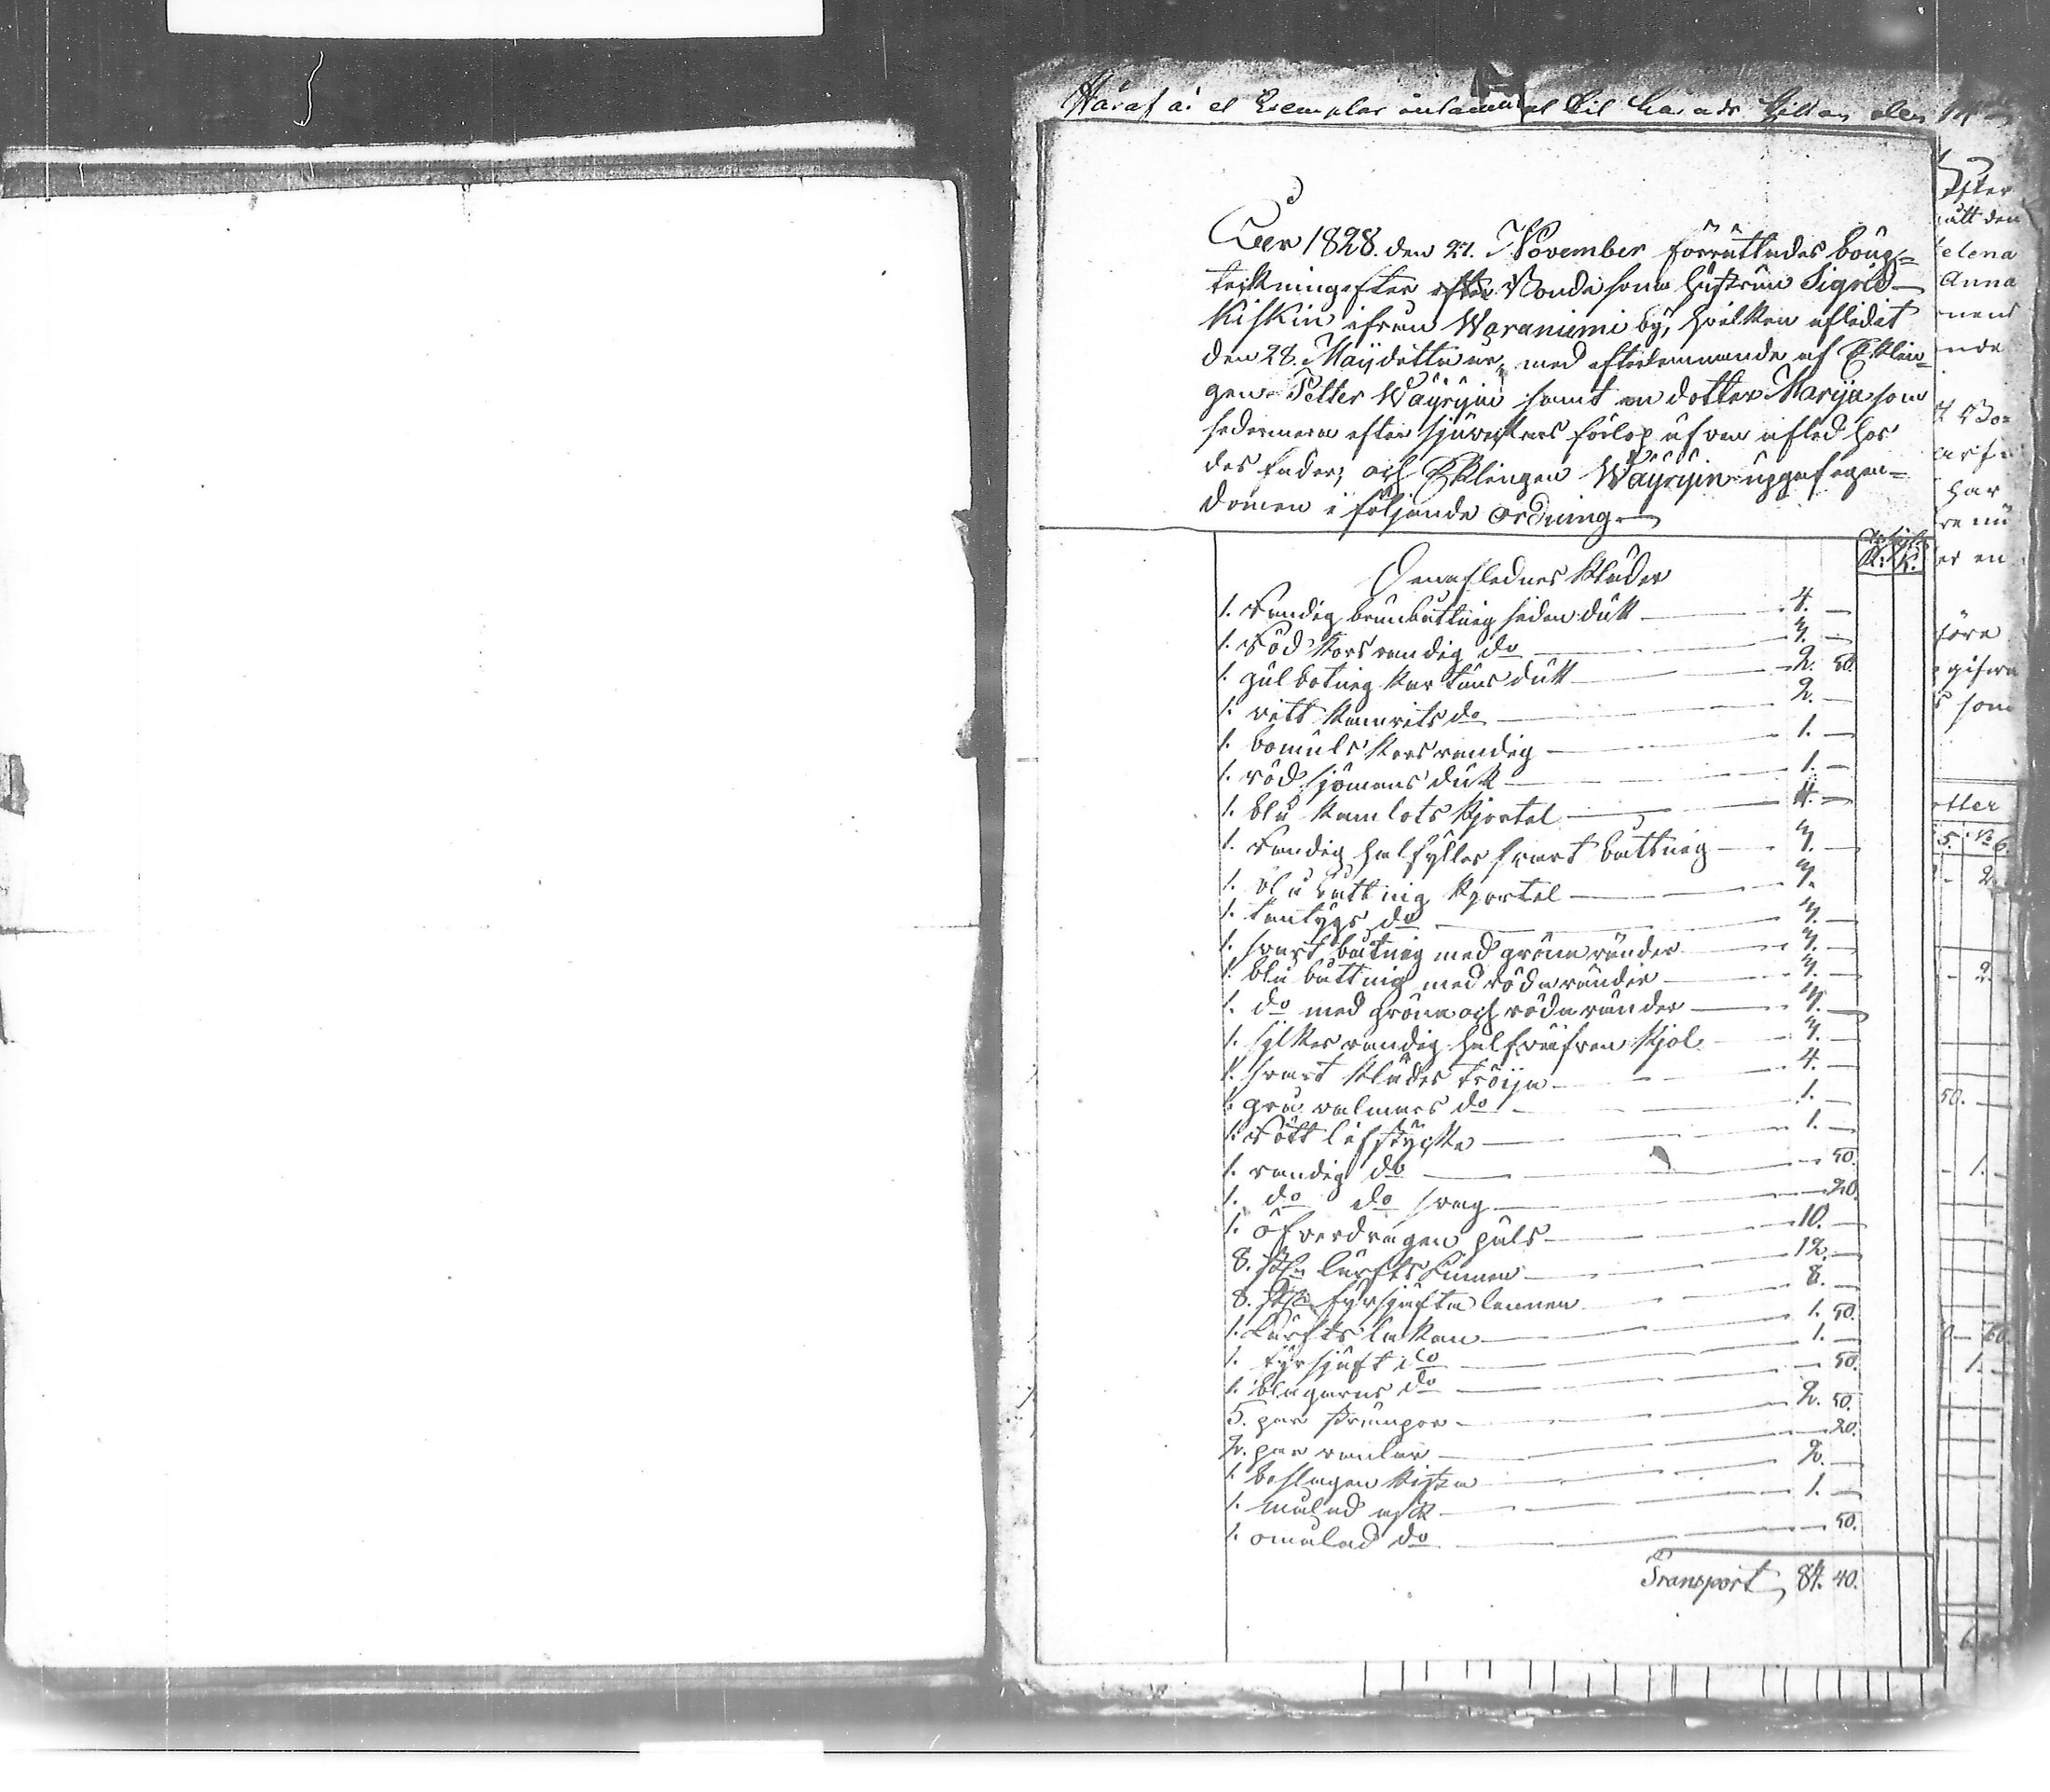 Häraf är et Exemplar inlämnat til Härads Kistan den
Åhr 1828. den 27. November förrättades boup=
tekning efter efter Bondesons hustrun Sigrid
Kiskin ifrån Waraniemi by, hvilken aflidit
den 28. Maij detta år, med efterlemnande af Enklin=
gen Petter Wäyryin samt en dotter Marija som
sedermera efter sju veckors förlop äfven afled hos
des fader, och Enklingen Wäyryin uppgaf egen=
domen i följande ordning.
R. K.
Den aflednes kläder
1. Randig brunbottnig siden duk 4. —
1. Röd korsrandig do 3. —
1. gulbotnig kartuns duk 2. 50.
1. vitt kamrits do 2. —
1. bomuls korsrandig 1. —
1. röd sjömans duk 1. —
1. blå kamlots kjortel 4. —
1. Randig halfylles svart bottnig 3. —
1. blå bottnig kjortel 3.
1. tentygs do 3. —
1. svart botnig med gröna ränder 3. —
1. blå bottnig med röda ränder 3. —
1. do med gröna och röda ränder 3. —
1. sylkes randig halfväfven kjol 3. —
1. svart klädes tröija 4. —
1. grå valmars do 1. —
1. Rött lifstycke 1. —
1. randig do 50.
1. do do svag 20.
1. öfverdragen päls 10. —
8. st. lärfts linnen 12. —
8. st. fyrskäfta lennen 8. —
1. Lärfts lakan 1. 50.
1. fyrskäft do 1. —
1. blagarns do 50.
5. par strumpor 2. 50.
2. par vantar 20.
1. beslagen kista 2. —
1. målad ask 1. —
1. omålad do 50.
Transport 84. 40.
efter
ätt den
elena
Anna
har
er en
som
5. No 6.
2.
2.
50. —
1.
60.
1.